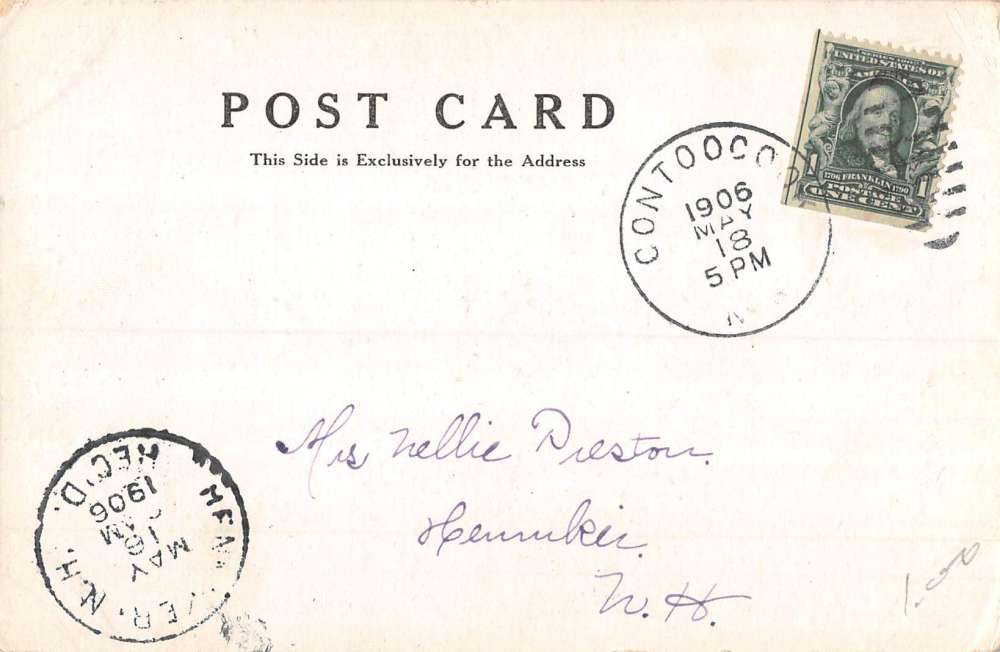 POST CARD
This Side is Exclusively for the Address
UNITED STATES OF
AMERICA
1706 FRANKLIN 1790
1 POSTAGE 1
ONE CENT
CONTOOCO
1906
MAY
18
5 PM
N
Mrs Nellie Preston.
Henniker.
N. H.
REC'D.
1906
MAY
N.H.
1.50